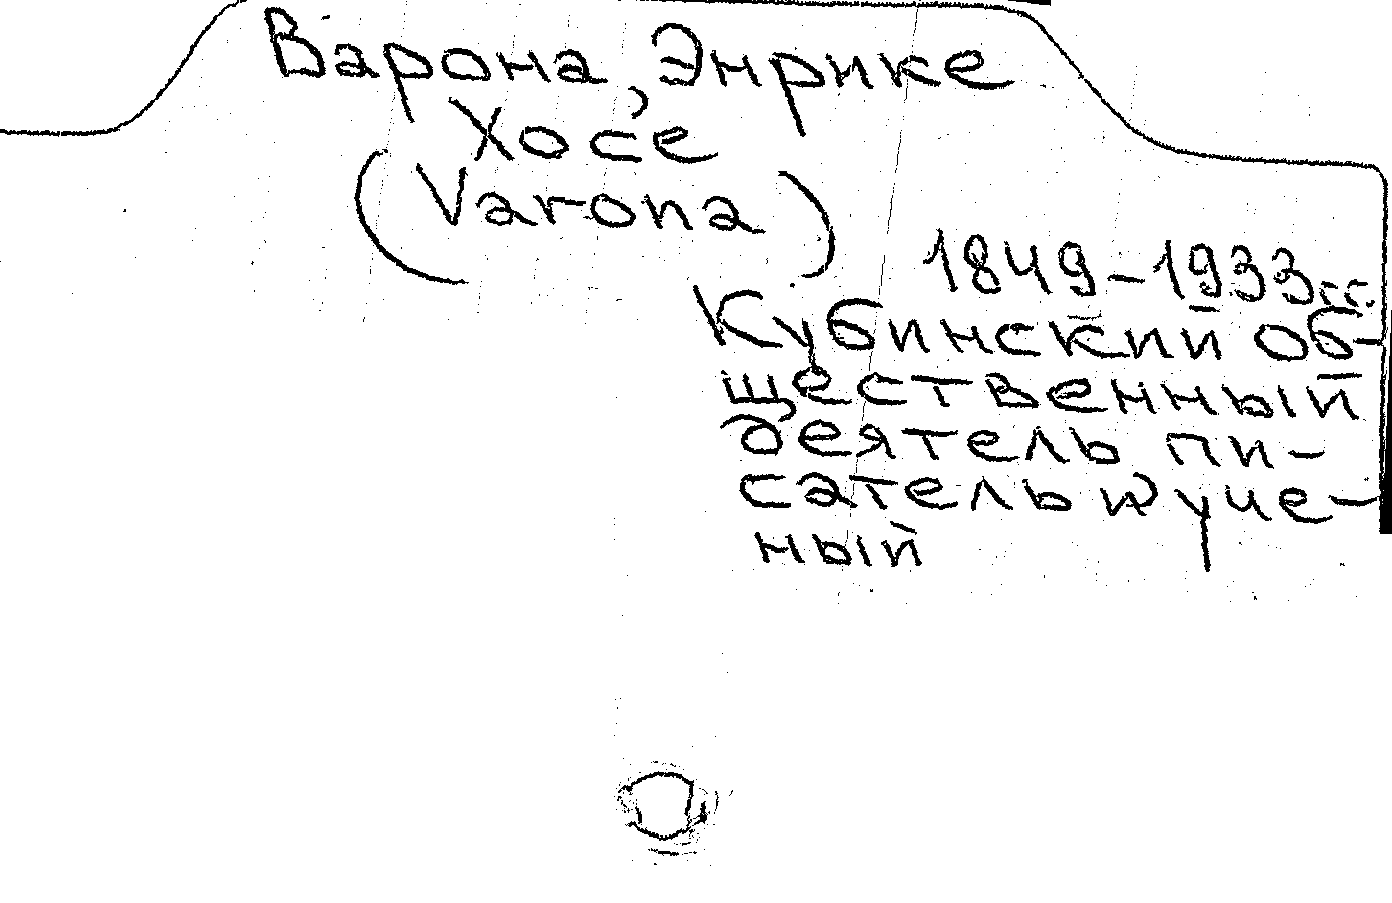 Варона, Энрике
Хосе
(Varona)
1849-1933гг.
Кубинский об-
щественный
деятель, пи-
сатель и уче-
ный